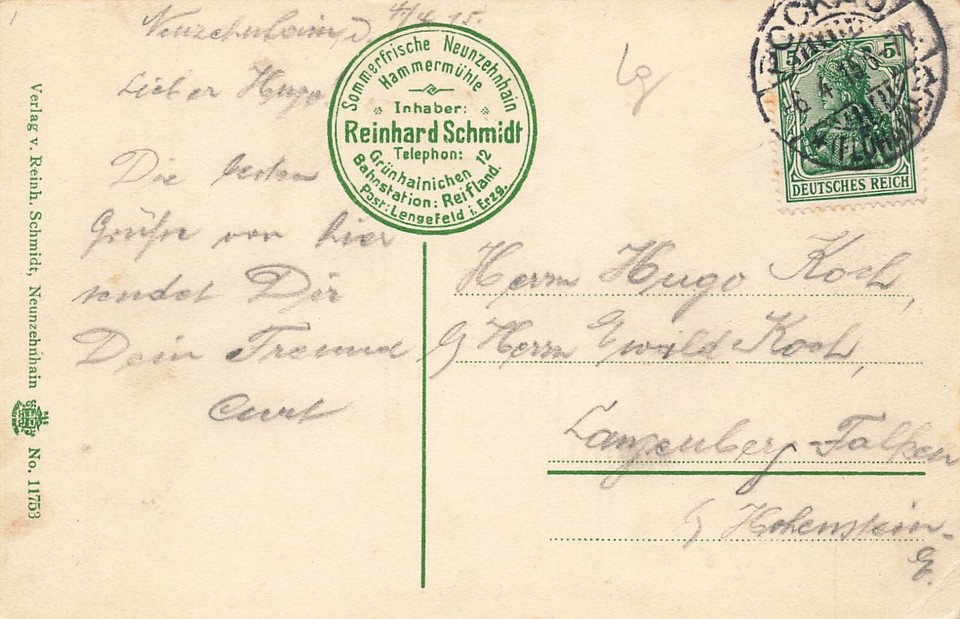 Neunzehnhain, d 4/4 15.
Lieber Hugo
Die besten
Grüße von hier
sendet Dir
Dein Freund
Curt
Sommerfrische Neunzehnhain
Hammermühle
Inhaber:
Reinhard Schmidt
Telephon:
Grünhainichen 12
Bahnstation: Reifland.
Post: Lengefeld i. Erzg.
5 5
DEUTSCHES REICH
Herrn Hugo Koch,
b/ Herrn Ewald Koch,
Langenberg-Falken
b/ Hohenstein-
E.
Verlag v. Reinh. Schmidt, Neunzehnhain No. 11753